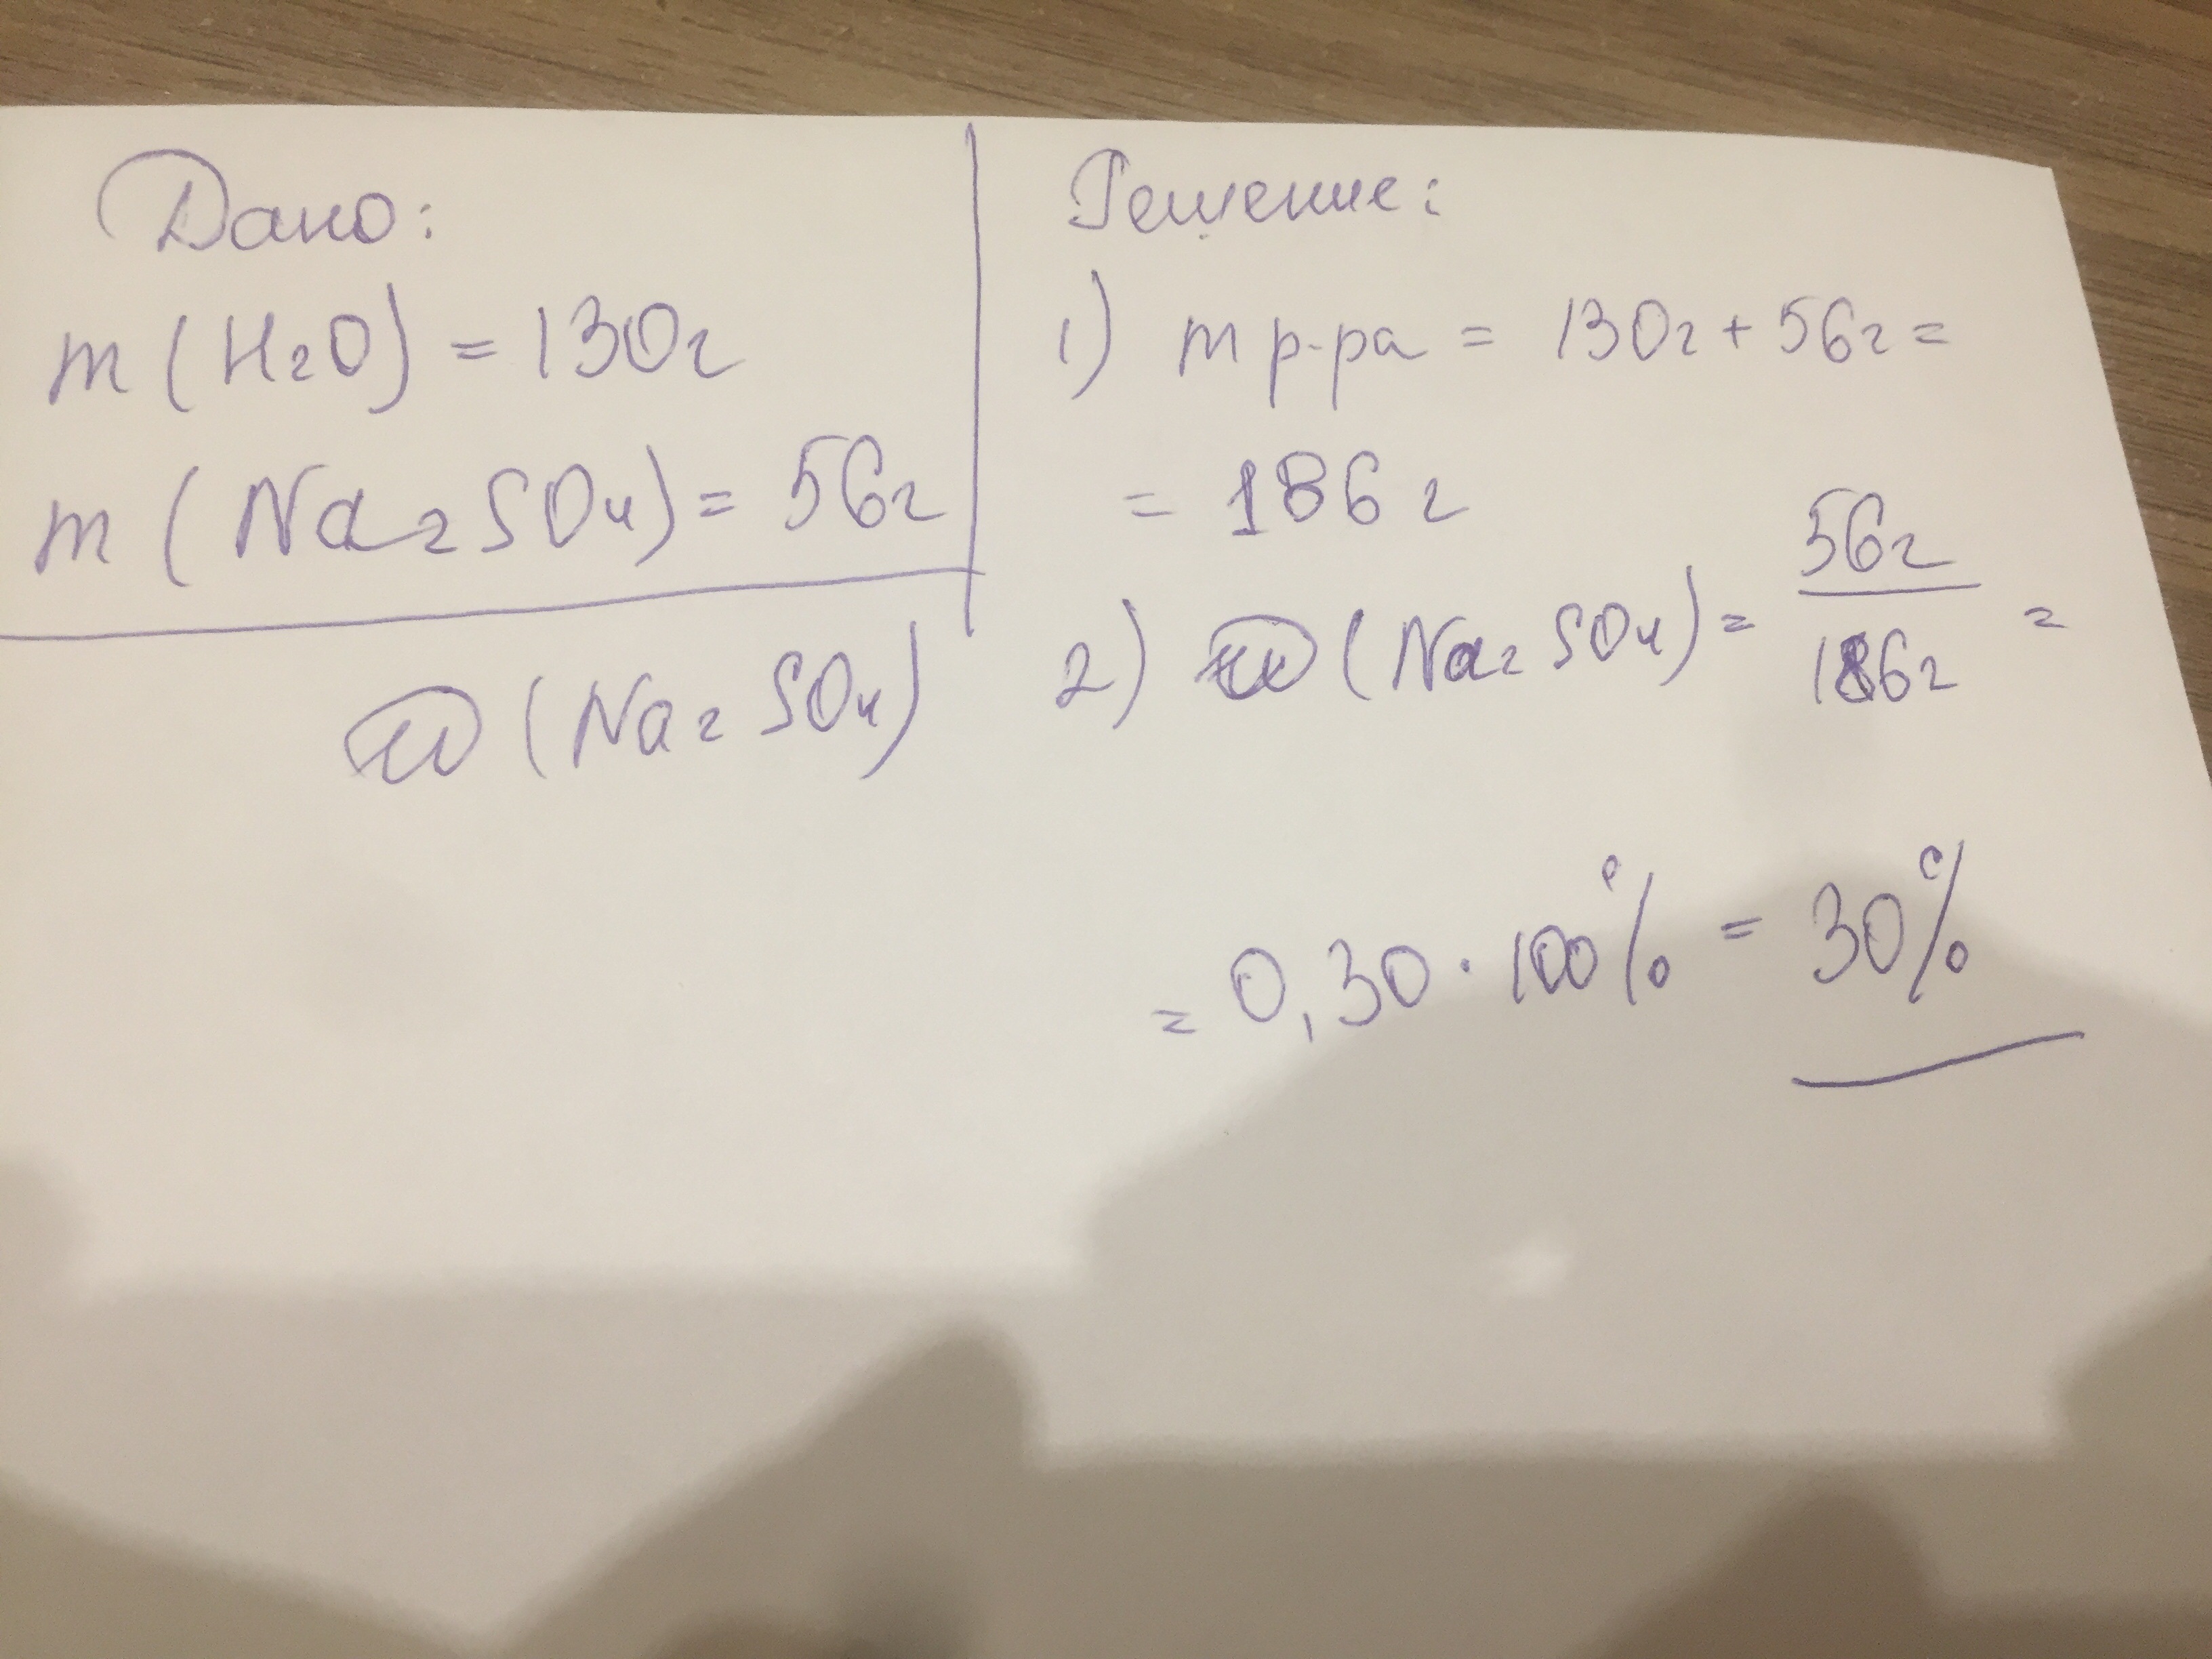 Дано:
m (H2O) = 130г
m (Na2SO4) = 56г
ω (Na2SO4)
Решение:
1) m р-ра = 130г + 56г =
= 186 г
2) ω (Na2SO4) = 56г / 186г =
= 0,30 · 100% = 30%